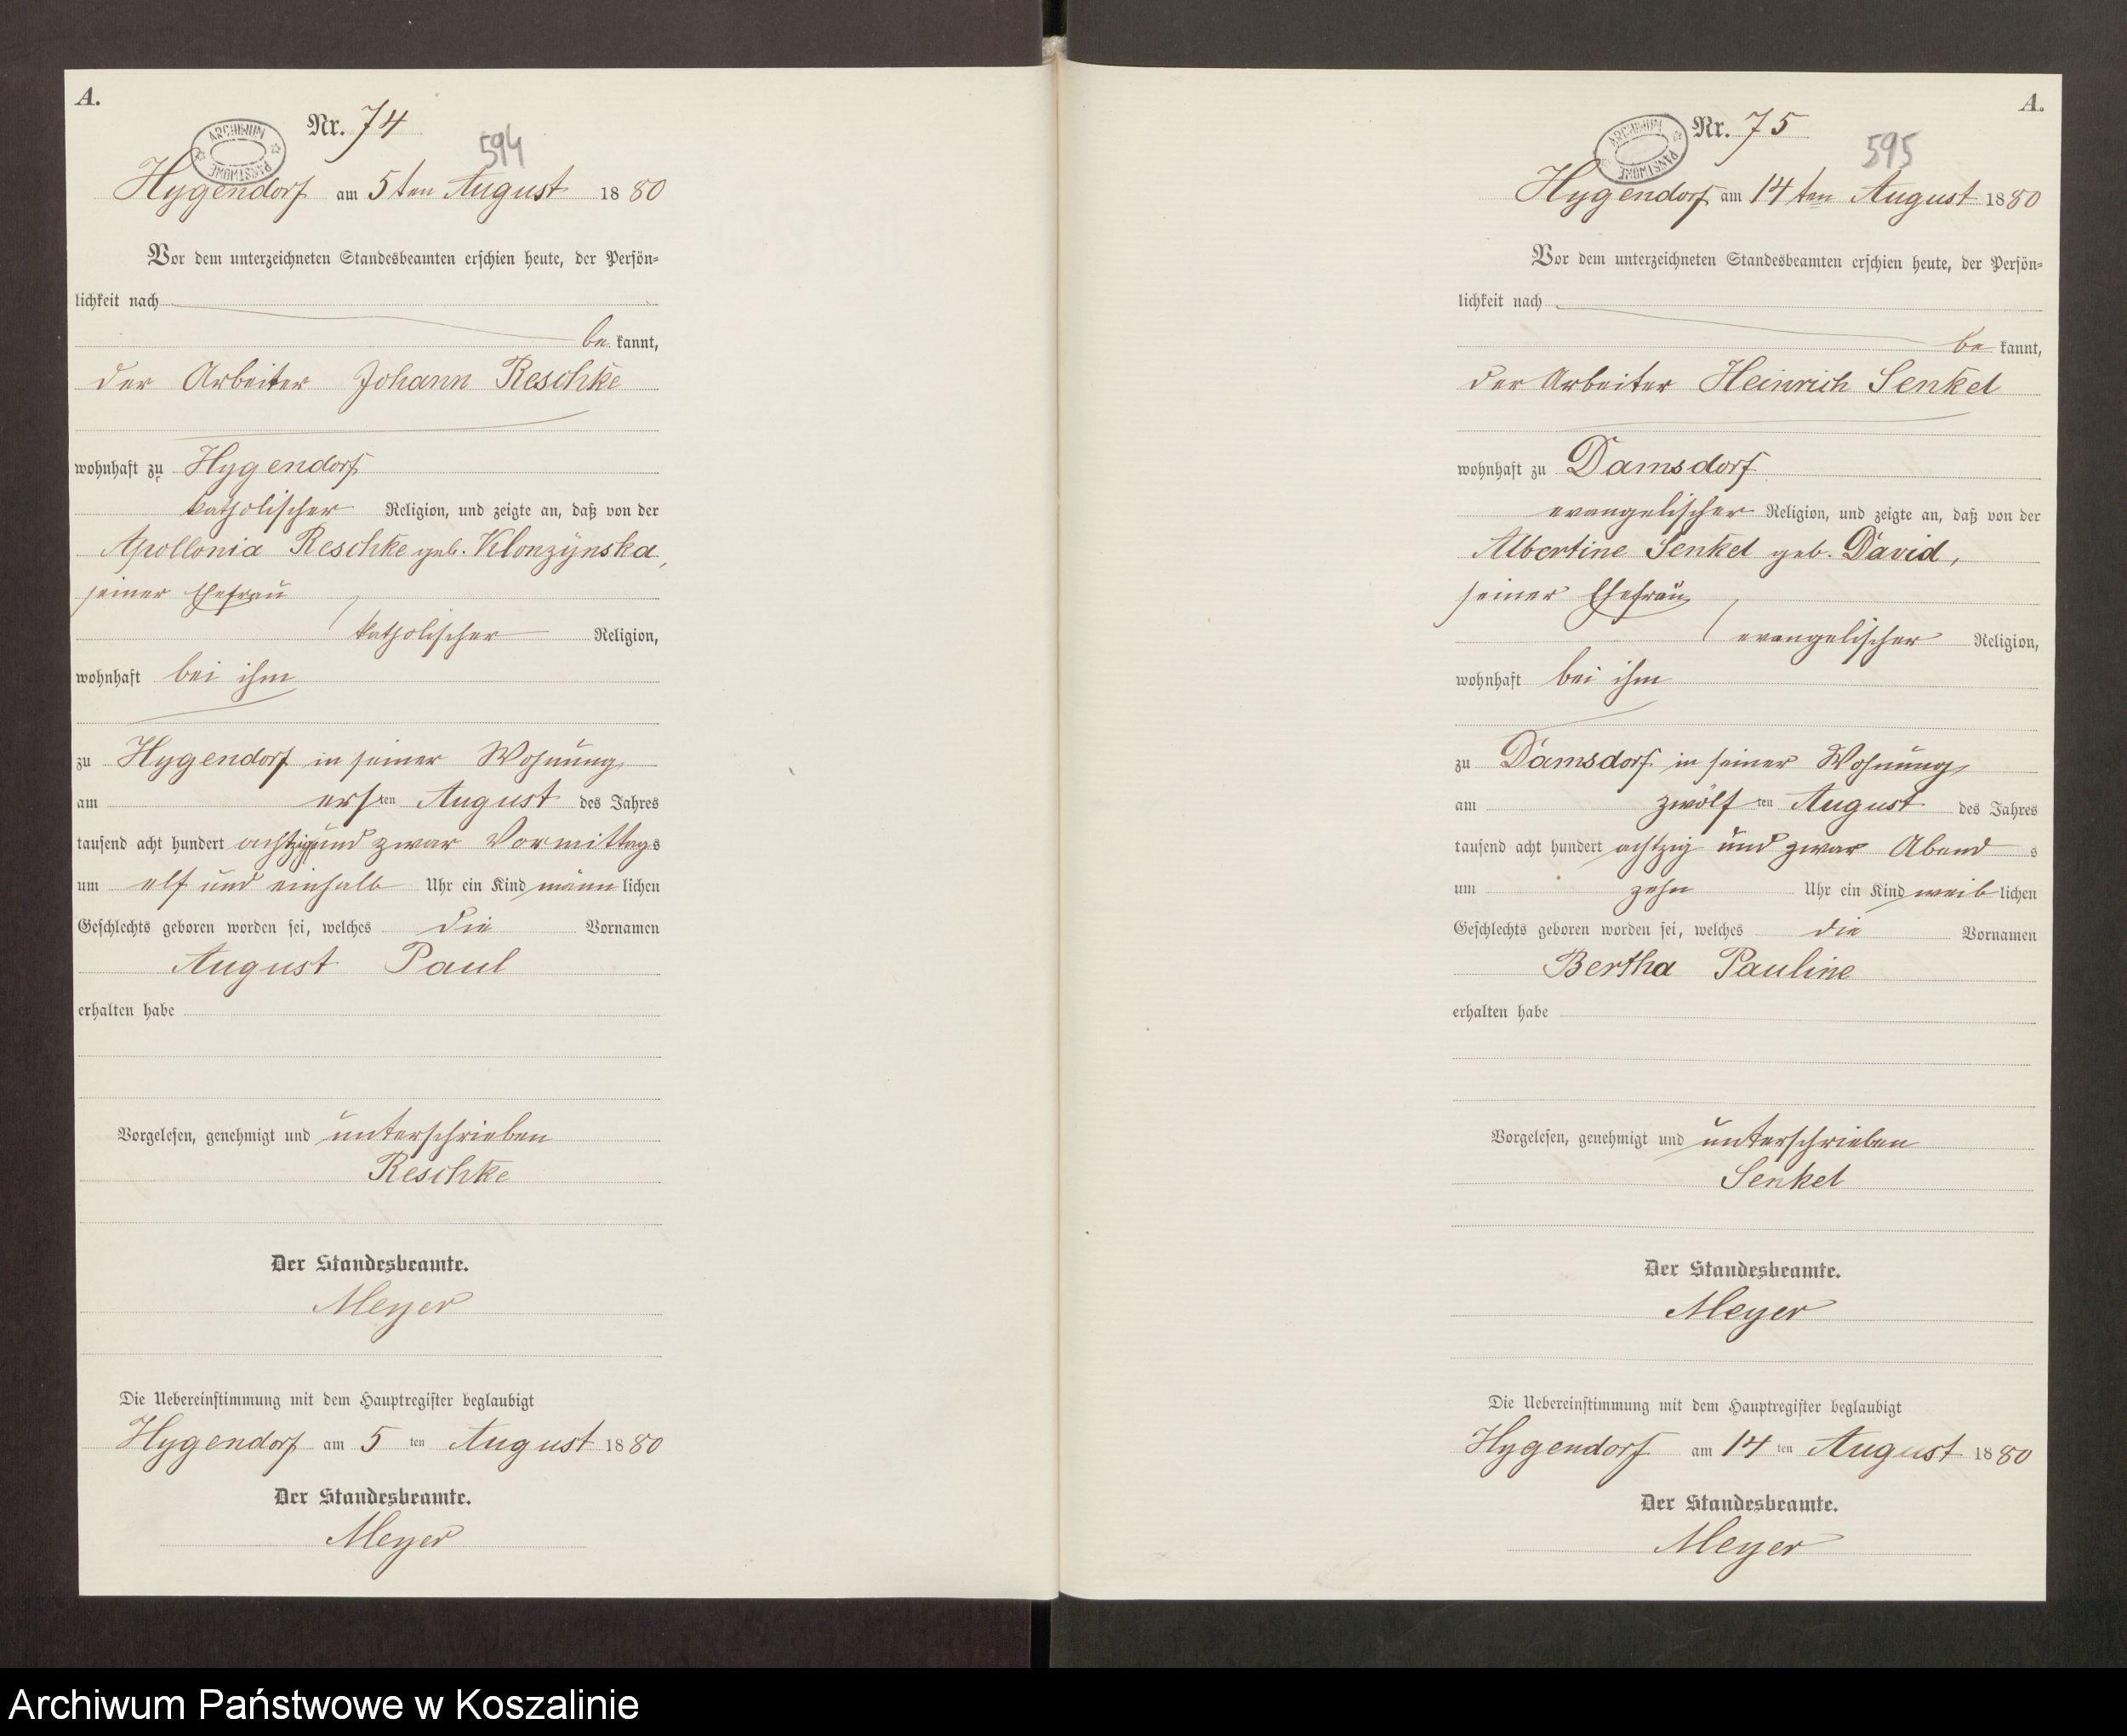 A.
Nr. 74
ARCHIWUM PAŃSTWOWE
594
Hygendorf am 5ten August 1880
Vor dem unterzeichneten Standesbeamten erschien heute, der Persön-
lichkeit nach
be kannt,
der Arbeiter Johann Reschke
wohnhaft zu Hygendorf
katholischer Religion, und zeigte an, daß von der
Apollonia Reschke geb. Klonzÿnska,
seiner Ehefrau
katholischer Religion,
wohnhaft bei ihm
zu Hygendorf in seiner Wohnung
am ersten August des Jahres
tausend acht hundert achtzig und zwar Vormittags
um elf und einhalb Uhr ein Kind männlichen
Geschlechts geboren worden sei, welches die Vornamen
August Paul
erhalten habe
Vorgelesen, genehmigt und unterschrieben
Reschke
Der Standesbeamte.
Meyer
Die Uebereinstimmung mit dem Hauptregister beglaubigt
Hygendorf am 5 ten August 1880
Der Standesbeamte.
Meyer
A.
Nr. 75
ARCHIWUM PAŃSTWOWE
595
Hygendorf am 14ten August 1880
Vor dem unterzeichneten Standesbeamten erschien heute, der Persön-
lichkeit nach
be kannt,
der Arbeiter Heinrich Senkel
wohnhaft zu Damsdorf
evangelischer Religion, und zeigte an, daß von der
Albertine Senkel geb. David,
seiner Ehefrau
evangelischer Religion,
wohnhaft bei ihm
zu Damsdorf in seiner Wohnung
am zwölf ten August des Jahres
tausend acht hundert achtzig und zwar Abend s
um zehn Uhr ein Kind weiblichen
Geschlechts geboren worden sei, welches die Vornamen
Bertha Pauline
erhalten habe
Vorgelesen, genehmigt und unterschrieben
Senkel
Der Standesbeamte.
Meyer
Die Uebereinstimmung mit dem Hauptregister beglaubigt
Hygendorf am 14 ten August 1880
Der Standesbeamte.
Meyer
Archiwum Państwowe w Koszalinie